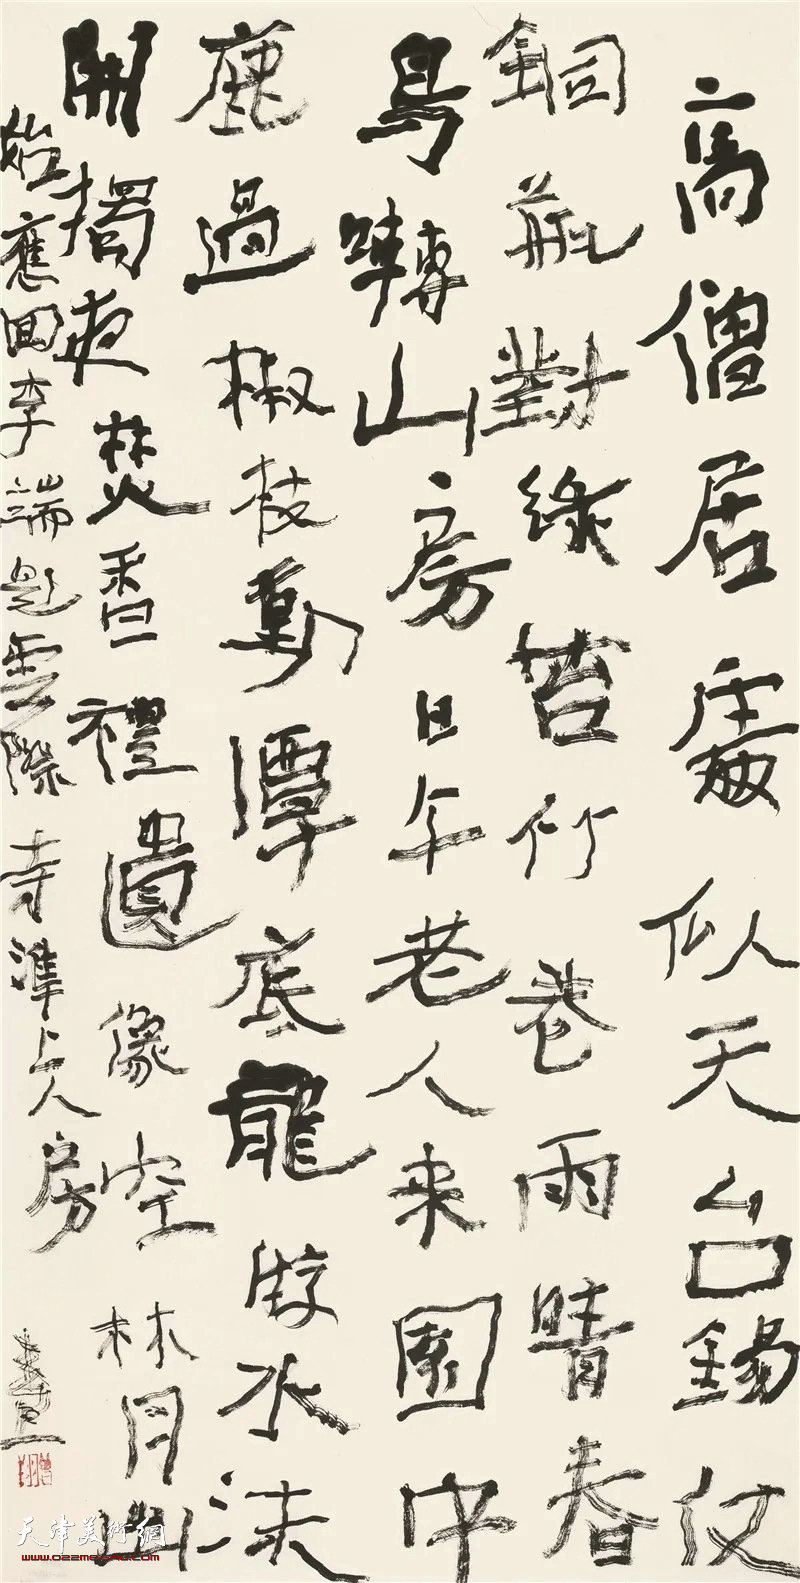 高僧居處似天台錫仗
銅瓶對綠苔竹巷雨晴春
鳥囀山房日午老人来園中
鹿過椒枝動潭底龍游水沫
開獨夜焚香禮遺像空林月出
始應回李端題雲際寺準上人房
曾翔
天津美術網
www.022meishu.com